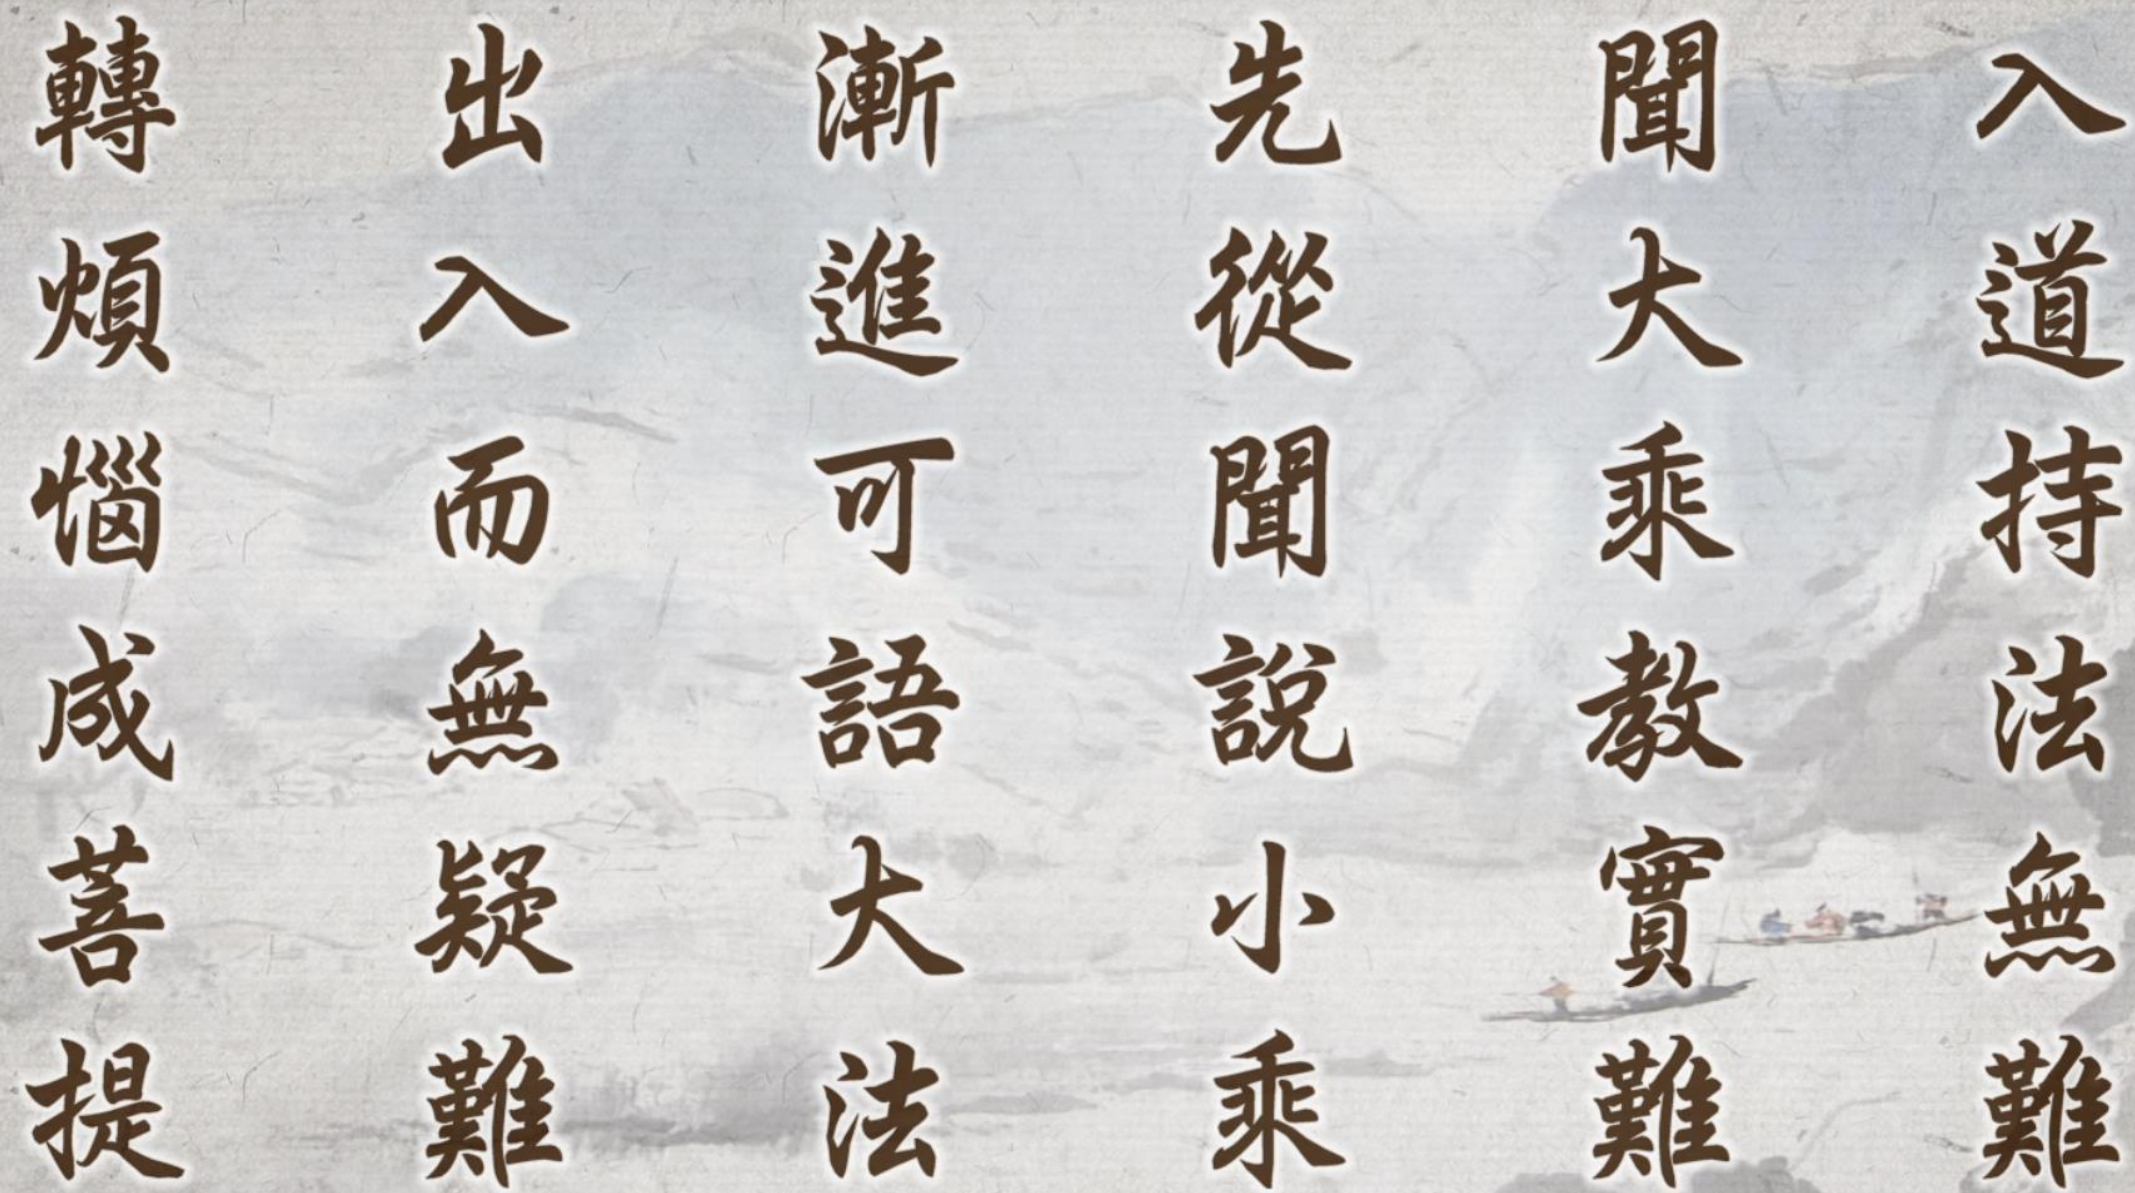 入道持法無難
聞大乘教實難
先從聞說小乘
漸進可語大法
出入而無疑難
轉煩惱成菩提